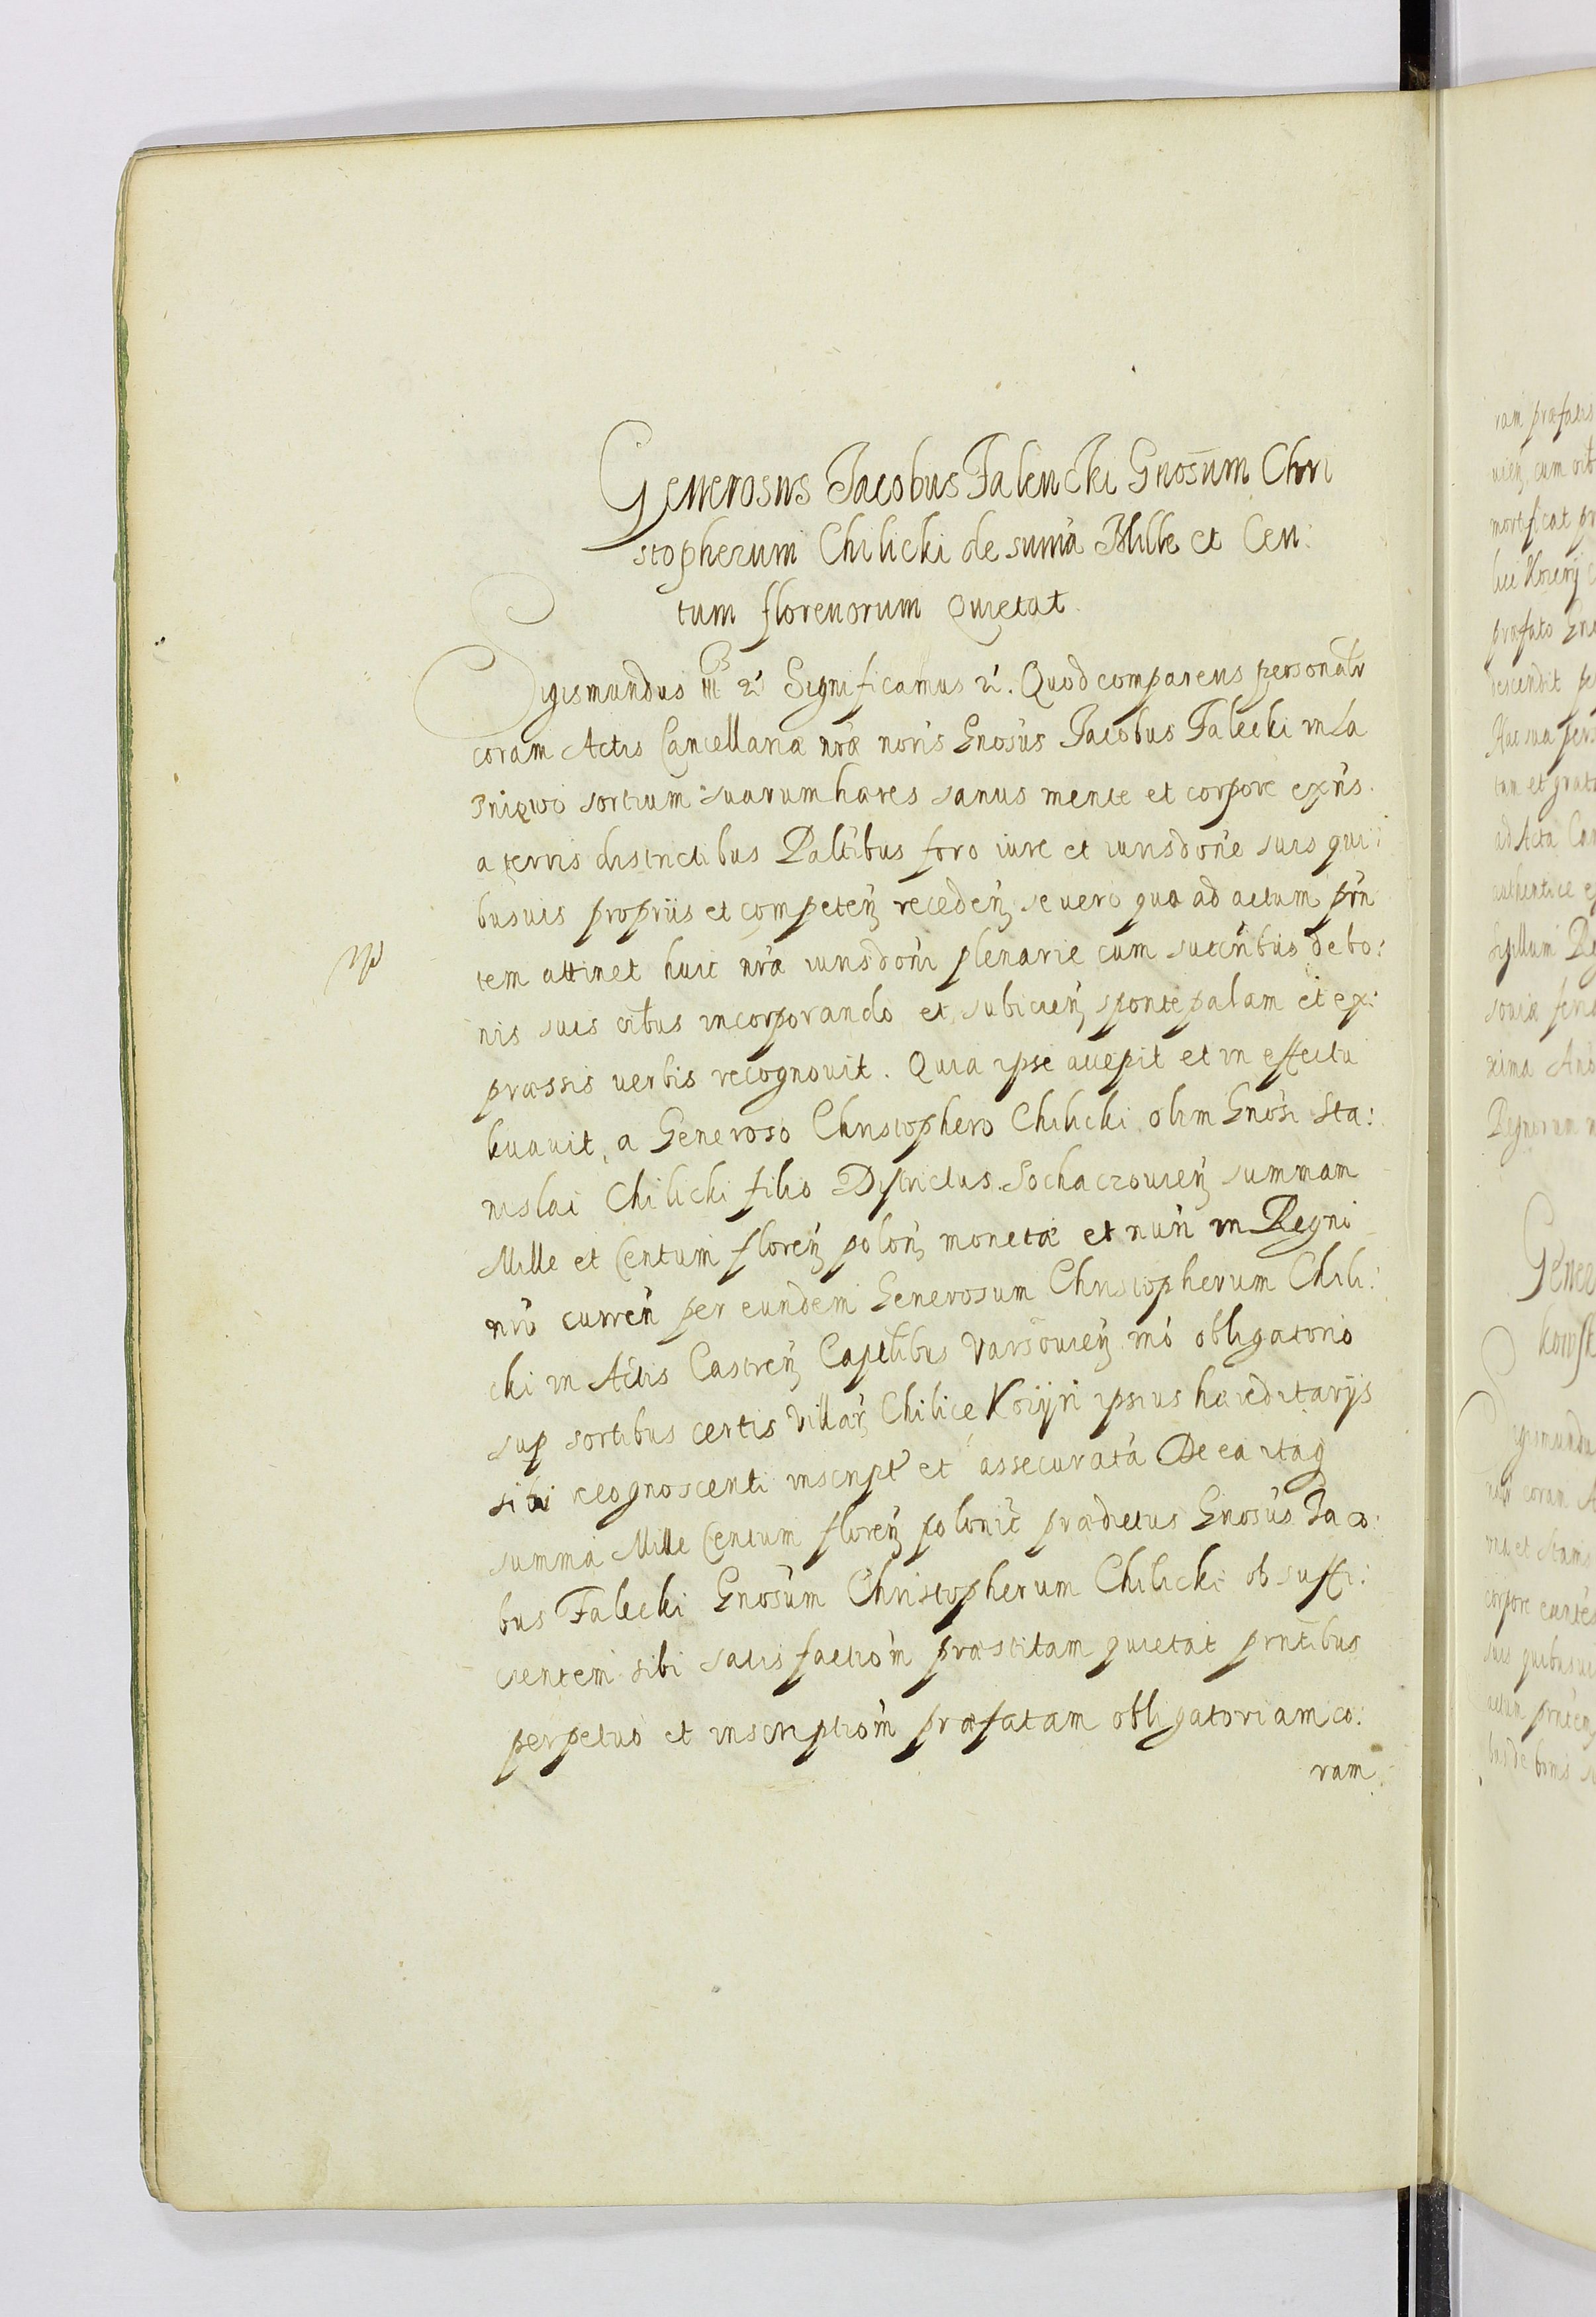 Generosus Jacobus Falencki Gnosum Chri
stopherum Chilicki de suma Mille et Cen:
tum florenorum Quietat.
Sigismundus III Significamus Quod comparens personalr
coram Actis Cancellariæ nræ noris Gnosus Jacobus Falecki in La
sortium suarum hæres sanus mente et corpore exns.
a terris districtibus Paltibus foro iure et iurisdone suis qui:
busuis propriis et competen receden se vero quo ad actum prn
tem attinet huic nræ iurisdoni plenarie cum sucrnbus de bo:
nis suis oibus incorporando et subiicien sponte palam et ex:
præssis verbis recognouit. Quia ipse accepit et in effectu
leuauit, a Generoso Christophero Chilicki olim Gnosi Sta:
nislai Chilicki filio Districtus Sochaczouien summam
Mille et Centum floren polon monetæ et nuri in Regni
nro curren per eundem Generosum Christopherum Chili:
cki in Actis Castren Capitlibus Varsouien mo obligatorio
sup sortibus certis Villar Chilice Kozyri ipsius hæreditarijs
sibi recognoscenti inscript et assecurata De ea itaq
summa Mille Centum floren polonic prædictus Gnosus Jaco:
bus Falecki Gnosum Christopherum Chilicki ob suffi:
cientem sibi satisfactiom præstitam quietat prntibus
perpetuo et inscriptiom præfatam obligatoriam co:
ram
ram præfatis
mortificat
præfato
descendit
Hac sua
tam et grat
ad Acta Can
authentice
sigillum
Gener
kowsk
coram
corpore
suis quibusui
actum prnten